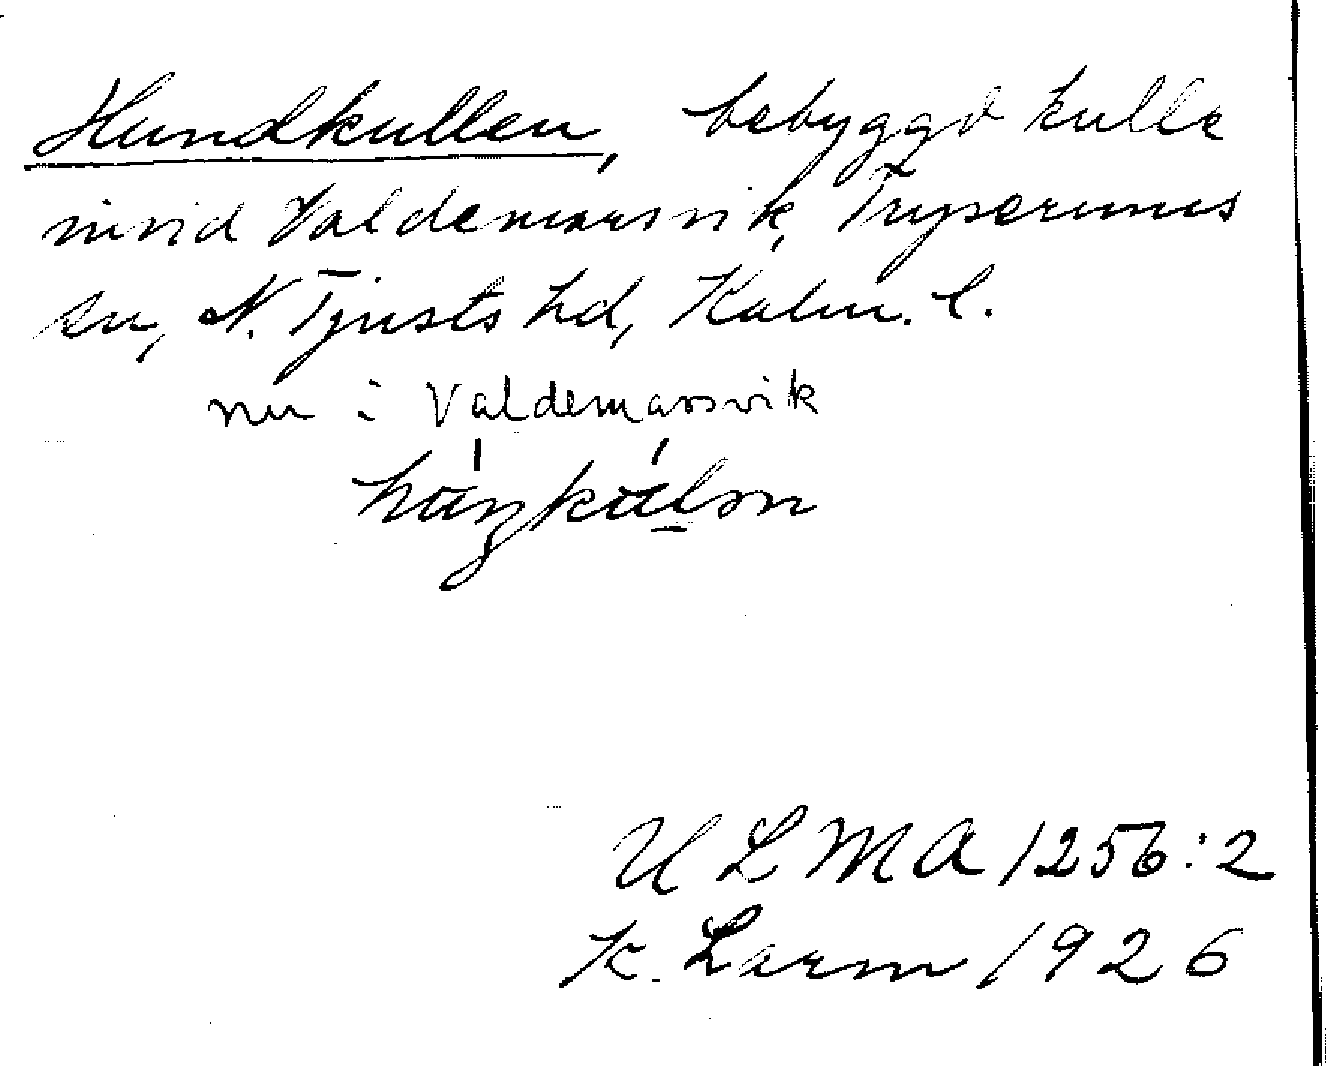 Hundkullen, bebyggd kulle
invid Valdemarsvik, Tryserums
sn, N. Tjusts hd, Kalm. l.
nu i Valdemarsvik
ULMA 1256:2
K. Larm 1926